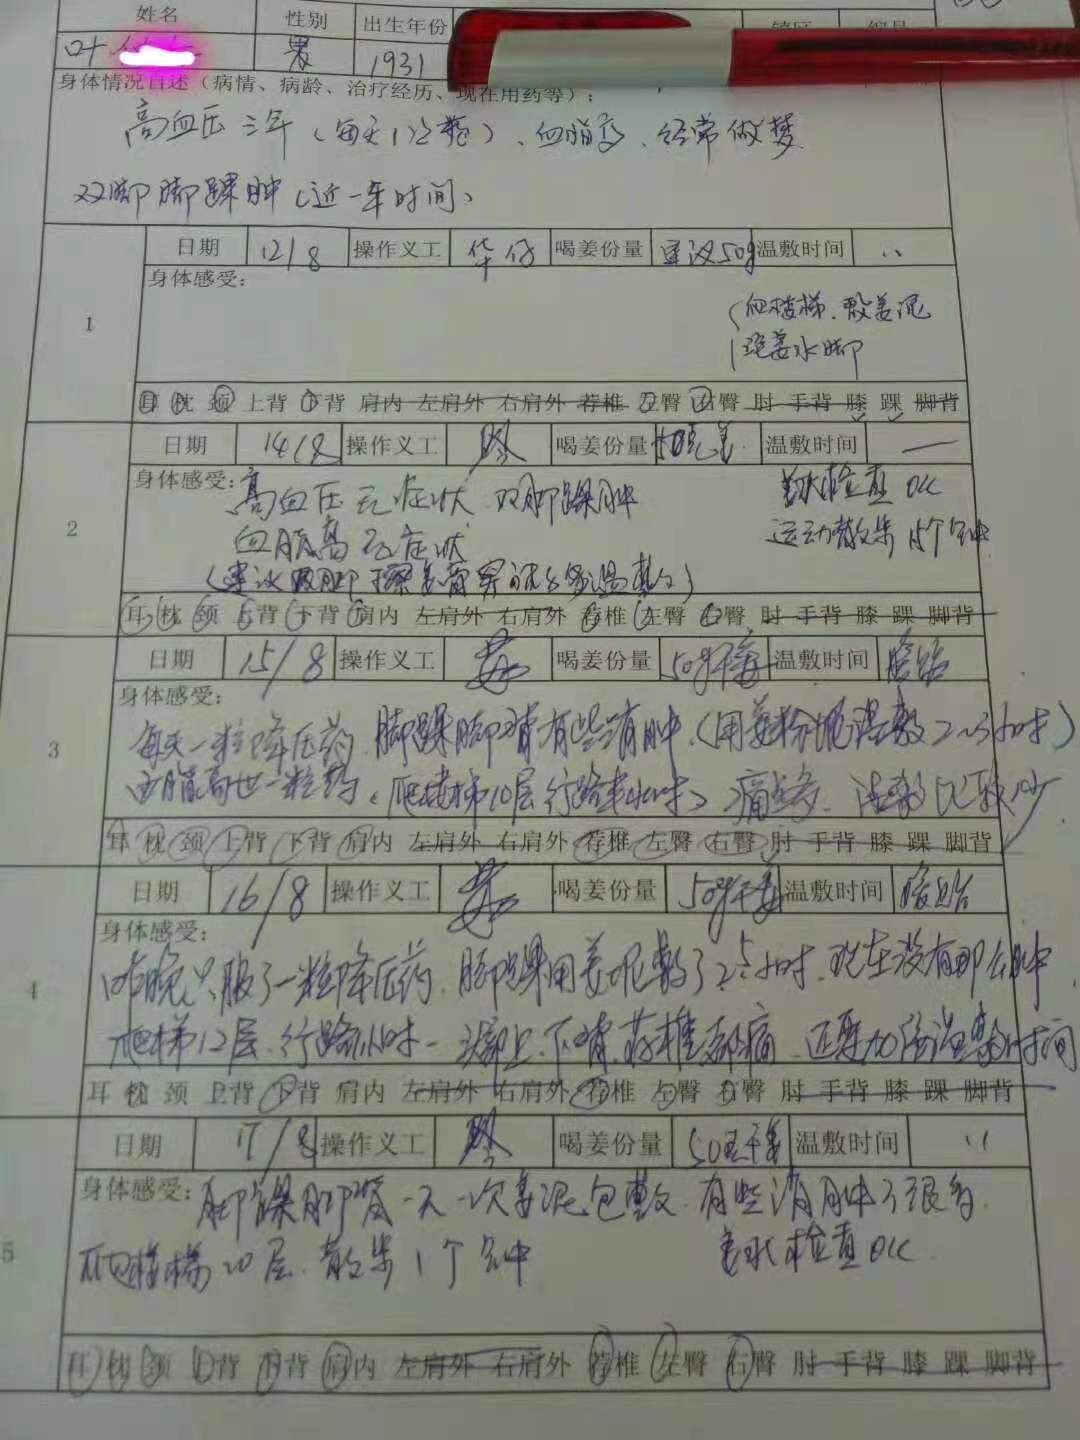 姓名 性别 出生年份
叶 男 1931
身体情况自述（病情、病龄、治疗经历、现在用药等）：
高血压三年（每天1 ）、血脂高、经常做梦
双脚脚踝肿（近一年时间）
日期 12/8 操作义工 华仔 喝姜份量 50g 温敷时间
身体感受：
1
爬楼梯、敷姜泥
泡姜水脚
耳 枕 颈 上背 下背 肩内 左肩外 右肩外 荐椎 左臀 右臀 肘 手背 膝 踝 脚背
日期 14/8 操作义工 喝姜份量 50克姜 温敷时间 —
2
身体感受：高血压无症状 双脚踝肿 检查OK
血脂高无症状 运动散步15个分钟
（建议双脚
耳 枕 颈 上背 下背 肩内 左肩外 右肩外 荐椎 左臀 右臀 肘 手背 膝 踝 脚背
日期 15/8 操作义工 喝姜份量 50g干姜 温敷时间
3
身体感受：
每天一粒降压药、脚踝脚背有些消肿、（用姜粉泥温敷2~3小时）
血脂高也一粒药、（爬楼梯10层行路半小时）痛 温敷比较少
耳 枕 颈 上背 下背 肩内 左肩外 右肩外 荐椎 左臀 右臀 肘 手背 膝 踝 脚背
日期 16/8 操作义工 喝姜份量 50g干姜 温敷时间
4
身体感受：
昨晚只服了一粒降压药、脚踝用姜泥敷了2.5小时、现在没有那么肿
爬梯12层、行路 小时、 上、下背、荐椎都痛、还要加 温敷时间
耳 枕 颈 上背 下背 肩内 左肩外 右肩外 荐椎 左臀 右臀 肘 手背 膝 踝 脚背
日期 17/8 操作义工 喝姜份量 50克干姜 温敷时间
5
身体感受：脚踝脚背一天一次姜泥包敷、有些消肿了很多、
爬楼梯20层、散步1个分钟 检查OK
耳 枕 颈 上背 下背 肩内 左肩外 右肩外 荐椎 左臀 右臀 肘 手背 膝 踝 脚背